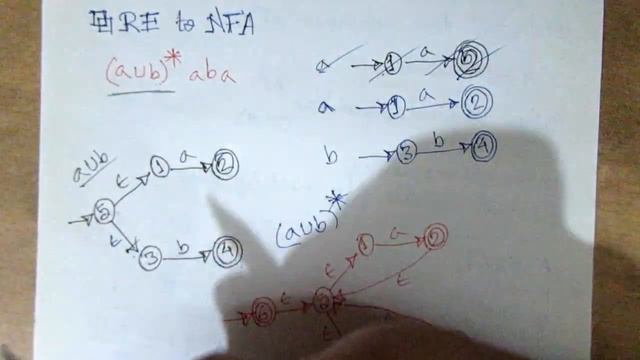 RE to NFA
(a∪b)* aba
a 1 a 2
a 1 a 2
b 3 b 4
a∪b
5 ε 1 a 2
ε 3 b 4
(a∪b)*
1 a 2
ε ε
6 ε
ε